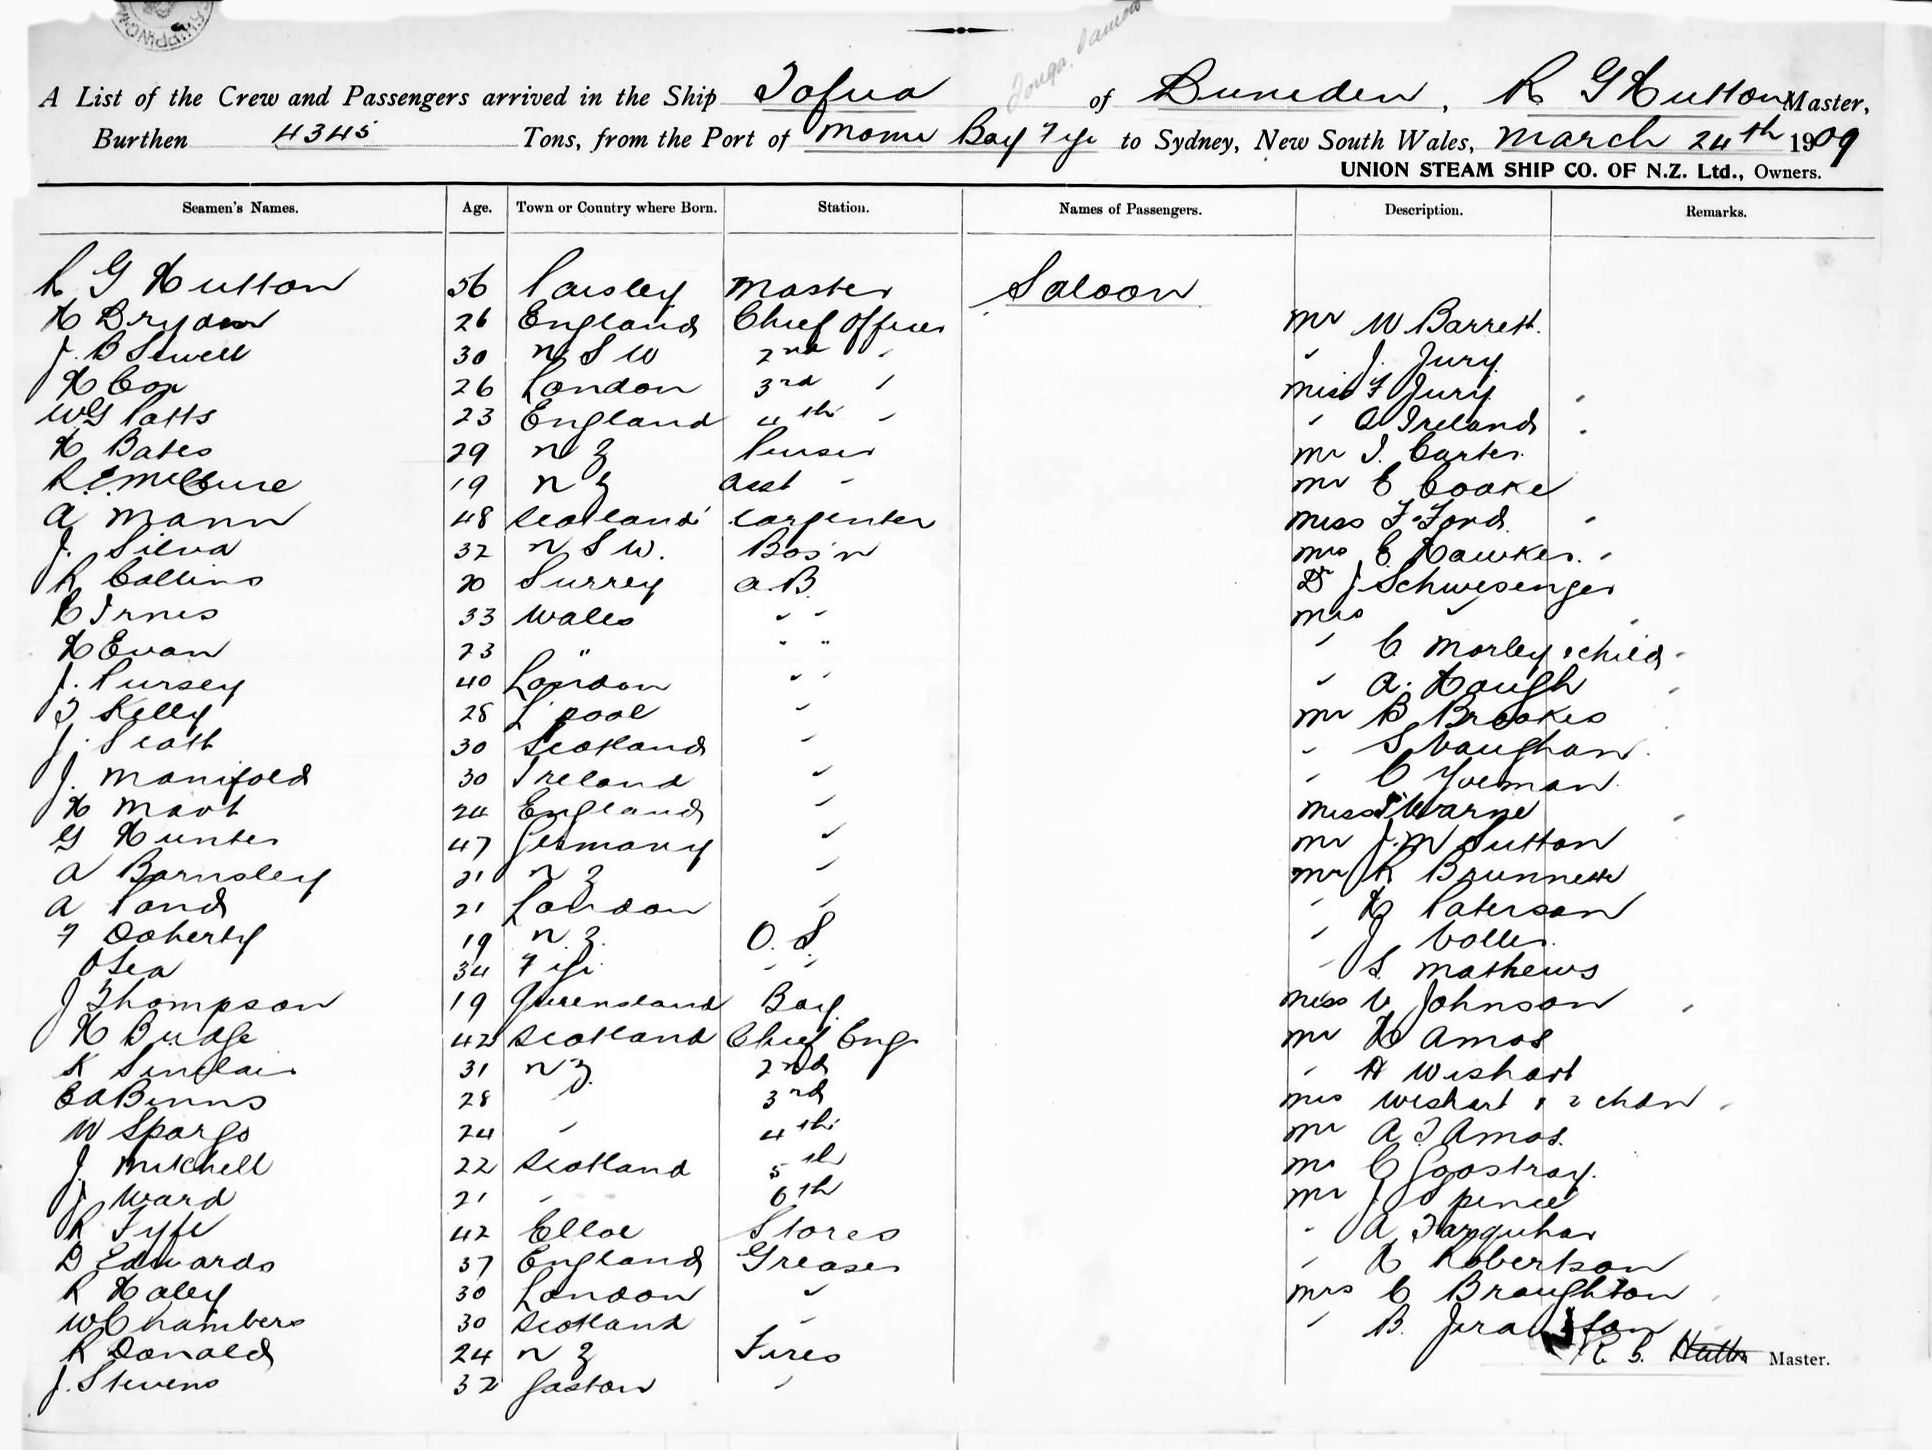 Tonga, Samoa
A List of the Crew and Passengers arrived in the Ship Tofua of Dunedin, R G Hutton Master,
Burthen 4345 Tons, from the Port of Momi Bay Fiji to Sydney, New South Wales, March 24th 1909
UNION STEAM SHIP CO. OF N.Z. Ltd., Owners.
Seamen's Names. Age. Town or Country where Born. Station. Names of Passengers. Description. Remarks.
R G Hutton 56 Paisley Master Saloon
H Bryden 26 England Chief Officer Mr W Barrett.
J. B Sewell 30 N S W 2nd " " J. Jury
H Cox 26 London 3rd " Miss F Jury
W G Potts 23 England 4th " " A Ireland
H Bates 29 N Z Purser Mr J. Carter
R. E. McClure 19 N Z Asst " Mr C Cooke
A Mann 48 Scotland Carpenter Miss F Ford
J. Silva 32 N S W. Bos'n Mrs E Hawkes.
R Collins 20 Surrey A.B. Dr J Schwesenger
33 Wales " " Mrs "
H Evan 23 " " " " C Morley & child
J. Pursey 40 London " " " A. Hough
J Kelly 28 L'pool " Mr B Brookes
J. Scott 30 Scotland " " S Vaughan
J. Manifold 30 Ireland " " C Yoeman
H 24 England " Miss Warne
G Hunter 47 Germany " Mr J. M Sutton
A Barnsley 21 N Z " Mr R
A Pond 21 London " " H Paterson
F Doherty 19 N. Z. O. S. " J
34 Fiji " " " S. Mathews
J Thompson 19 Queensland Boy Miss V Johnson
H Budge 42 Scotland Chief Eng. Mr H Amos
K Sinclair 31 N Z. 2nd " A Wishart
E A Binns 28 " 3rd Mrs Wishart & 2 chdn
W Spargo 24 " 4th Mr A J Amos.
J. Mitchell 22 Scotland 5th Mr C Goostray.
J Ward 21 " 6th Mr J Spence
R Fyfe 42 Stores " A Farquhar
D Edwards 37 England Greaser " R Robertson
R Haley 30 London " Mrs C Broughton
W Chambers 30 Scotland " " B.
R Donald 24 N Z Fires R. G. Hutton Master.
J. Stevens 32 "